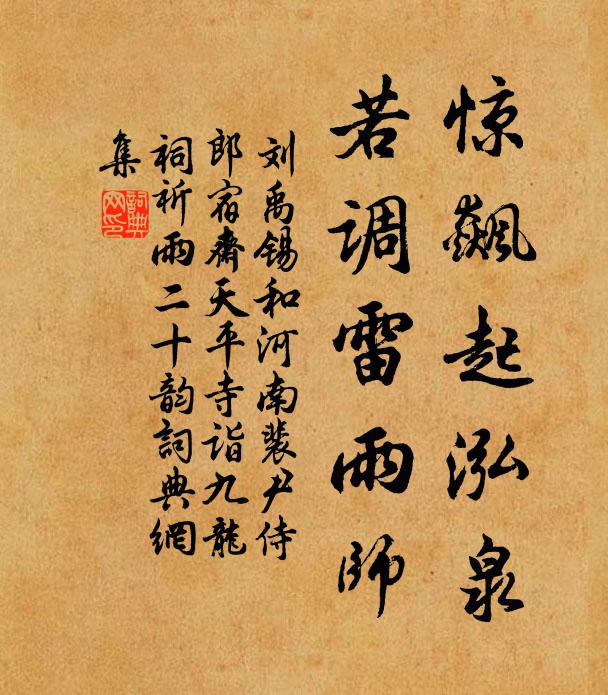 惊飙起泓泉
若调雷雨师
刘禹锡和河南裴尹侍
郎宿斋天平寺诣九龙
祠祈雨二十韵詞典網
集
詞典網印